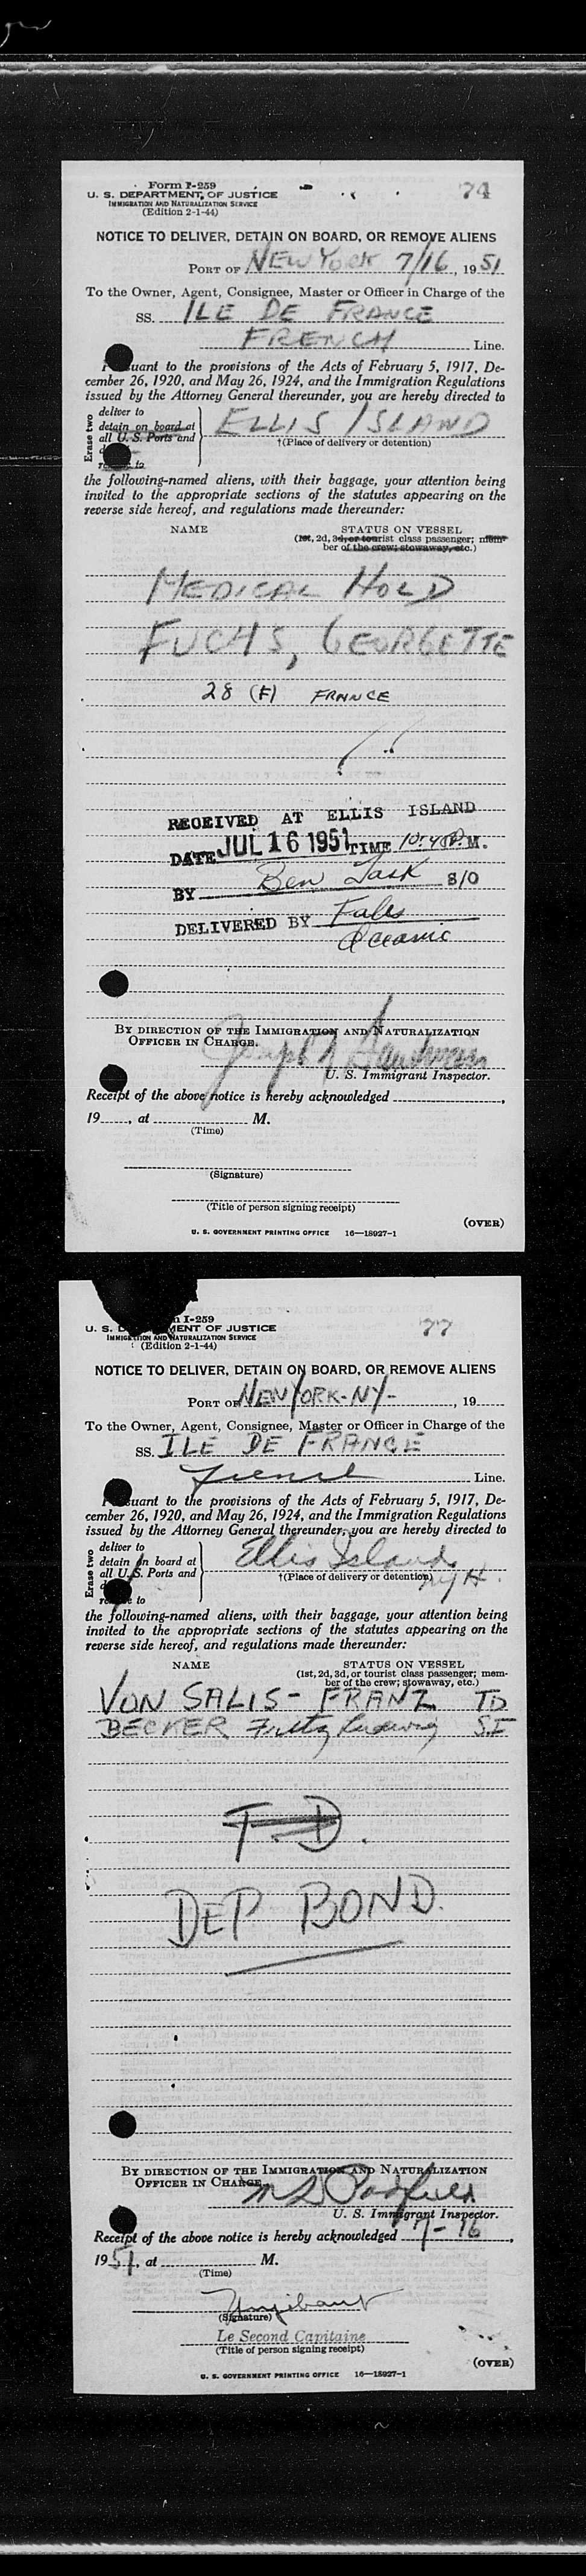 Form I-259
74
U. S. DEPARTMENT OF JUSTICE
IMMIGRATION AND NATURALIZATION SERVICE
(Edition 2-1-44)
NOTICE TO DELIVER, DETAIN ON BOARD, OR REMOVE ALIENS
PORT OF NEW YORK 7/16, 1951
To the Owner, Agent, Consignee, Master or Officer in Charge of the
SS. ILE DE FRANCE
FRENCH Line.
Pursuant to the provisions of the Acts of February 5, 1917, De-
cember 26, 1920, and May 26, 1924, and the Immigration Regulations
issued by the Attorney General thereunder, you are hereby directed to
Erase two
deliver to
detain on board at
all U. S. Ports and
to
ELLIS ISLAND
†(Place of delivery or detention)
the following-named aliens, with their baggage, your attention being
invited to the appropriate sections of the statutes appearing on the
reverse side hereof, and regulations made thereunder:
NAME STATUS ON VESSEL
(1st, 2d, 3d, or tourist class passenger; mem-
ber of the crew; stowaway, etc.)
MEDICAL HOLD
FUCHS, GEORGETTE
28 (F) FRANCE
RECEIVED AT ELLIS ISLAND
DATE JUL 16 1951 TIME 10:40 P.M.
BY Ben Task S/O
DELIVERED BY Fales
Oceanic
BY DIRECTION OF THE IMMIGRATION AND NATURALIZATION
OFFICER IN CHARGE.
U. S. Immigrant Inspector.
Receipt of the above notice is hereby acknowledged ,
19 , at M.
(Time)
(Signature)
(Title of person signing receipt)
(OVER)
U. S. GOVERNMENT PRINTING OFFICE 16—18927-1
I-259
77
U. S. MENT OF JUSTICE
IMMIGRATION AND NATURALIZATION SERVICE
(Edition 2-1-44)
NOTICE TO DELIVER, DETAIN ON BOARD, OR REMOVE ALIENS
PORT OF NEW YORK-NY- , 19
To the Owner, Agent, Consignee, Master or Officer in Charge of the
SS. ILE DE FRANCE
French Line.
Pursuant to the provisions of the Acts of February 5, 1917, De-
cember 26, 1920, and May 26, 1924, and the Immigration Regulations
issued by the Attorney General thereunder, you are hereby directed to
Erase two
deliver to
detain on board at
all U. S. Ports and
to
Ellis Island
†(Place of delivery or detention)
NYH.
the following-named aliens, with their baggage, your attention being
invited to the appropriate sections of the statutes appearing on the
reverse side hereof, and regulations made thereunder:
NAME STATUS ON VESSEL
(1st, 2d, 3d, or tourist class passenger; mem-
ber of the crew; stowaway, etc.)
VON SALIS- FRANZ TD
BECKER Fritz Ludwig S.I
T.D.
DEP BOND.
BY DIRECTION OF THE IMMIGRATION AND NATURALIZATION
OFFICER IN CHARGE.
U. S. Immigrant Inspector.
Receipt of the above notice is hereby acknowledged 7-16,
1951, at M.
(Time)
(Signature)
Le Second Capitaine
(Title of person signing receipt)
(OVER)
U. S. GOVERNMENT PRINTING OFFICE 16—18927-1